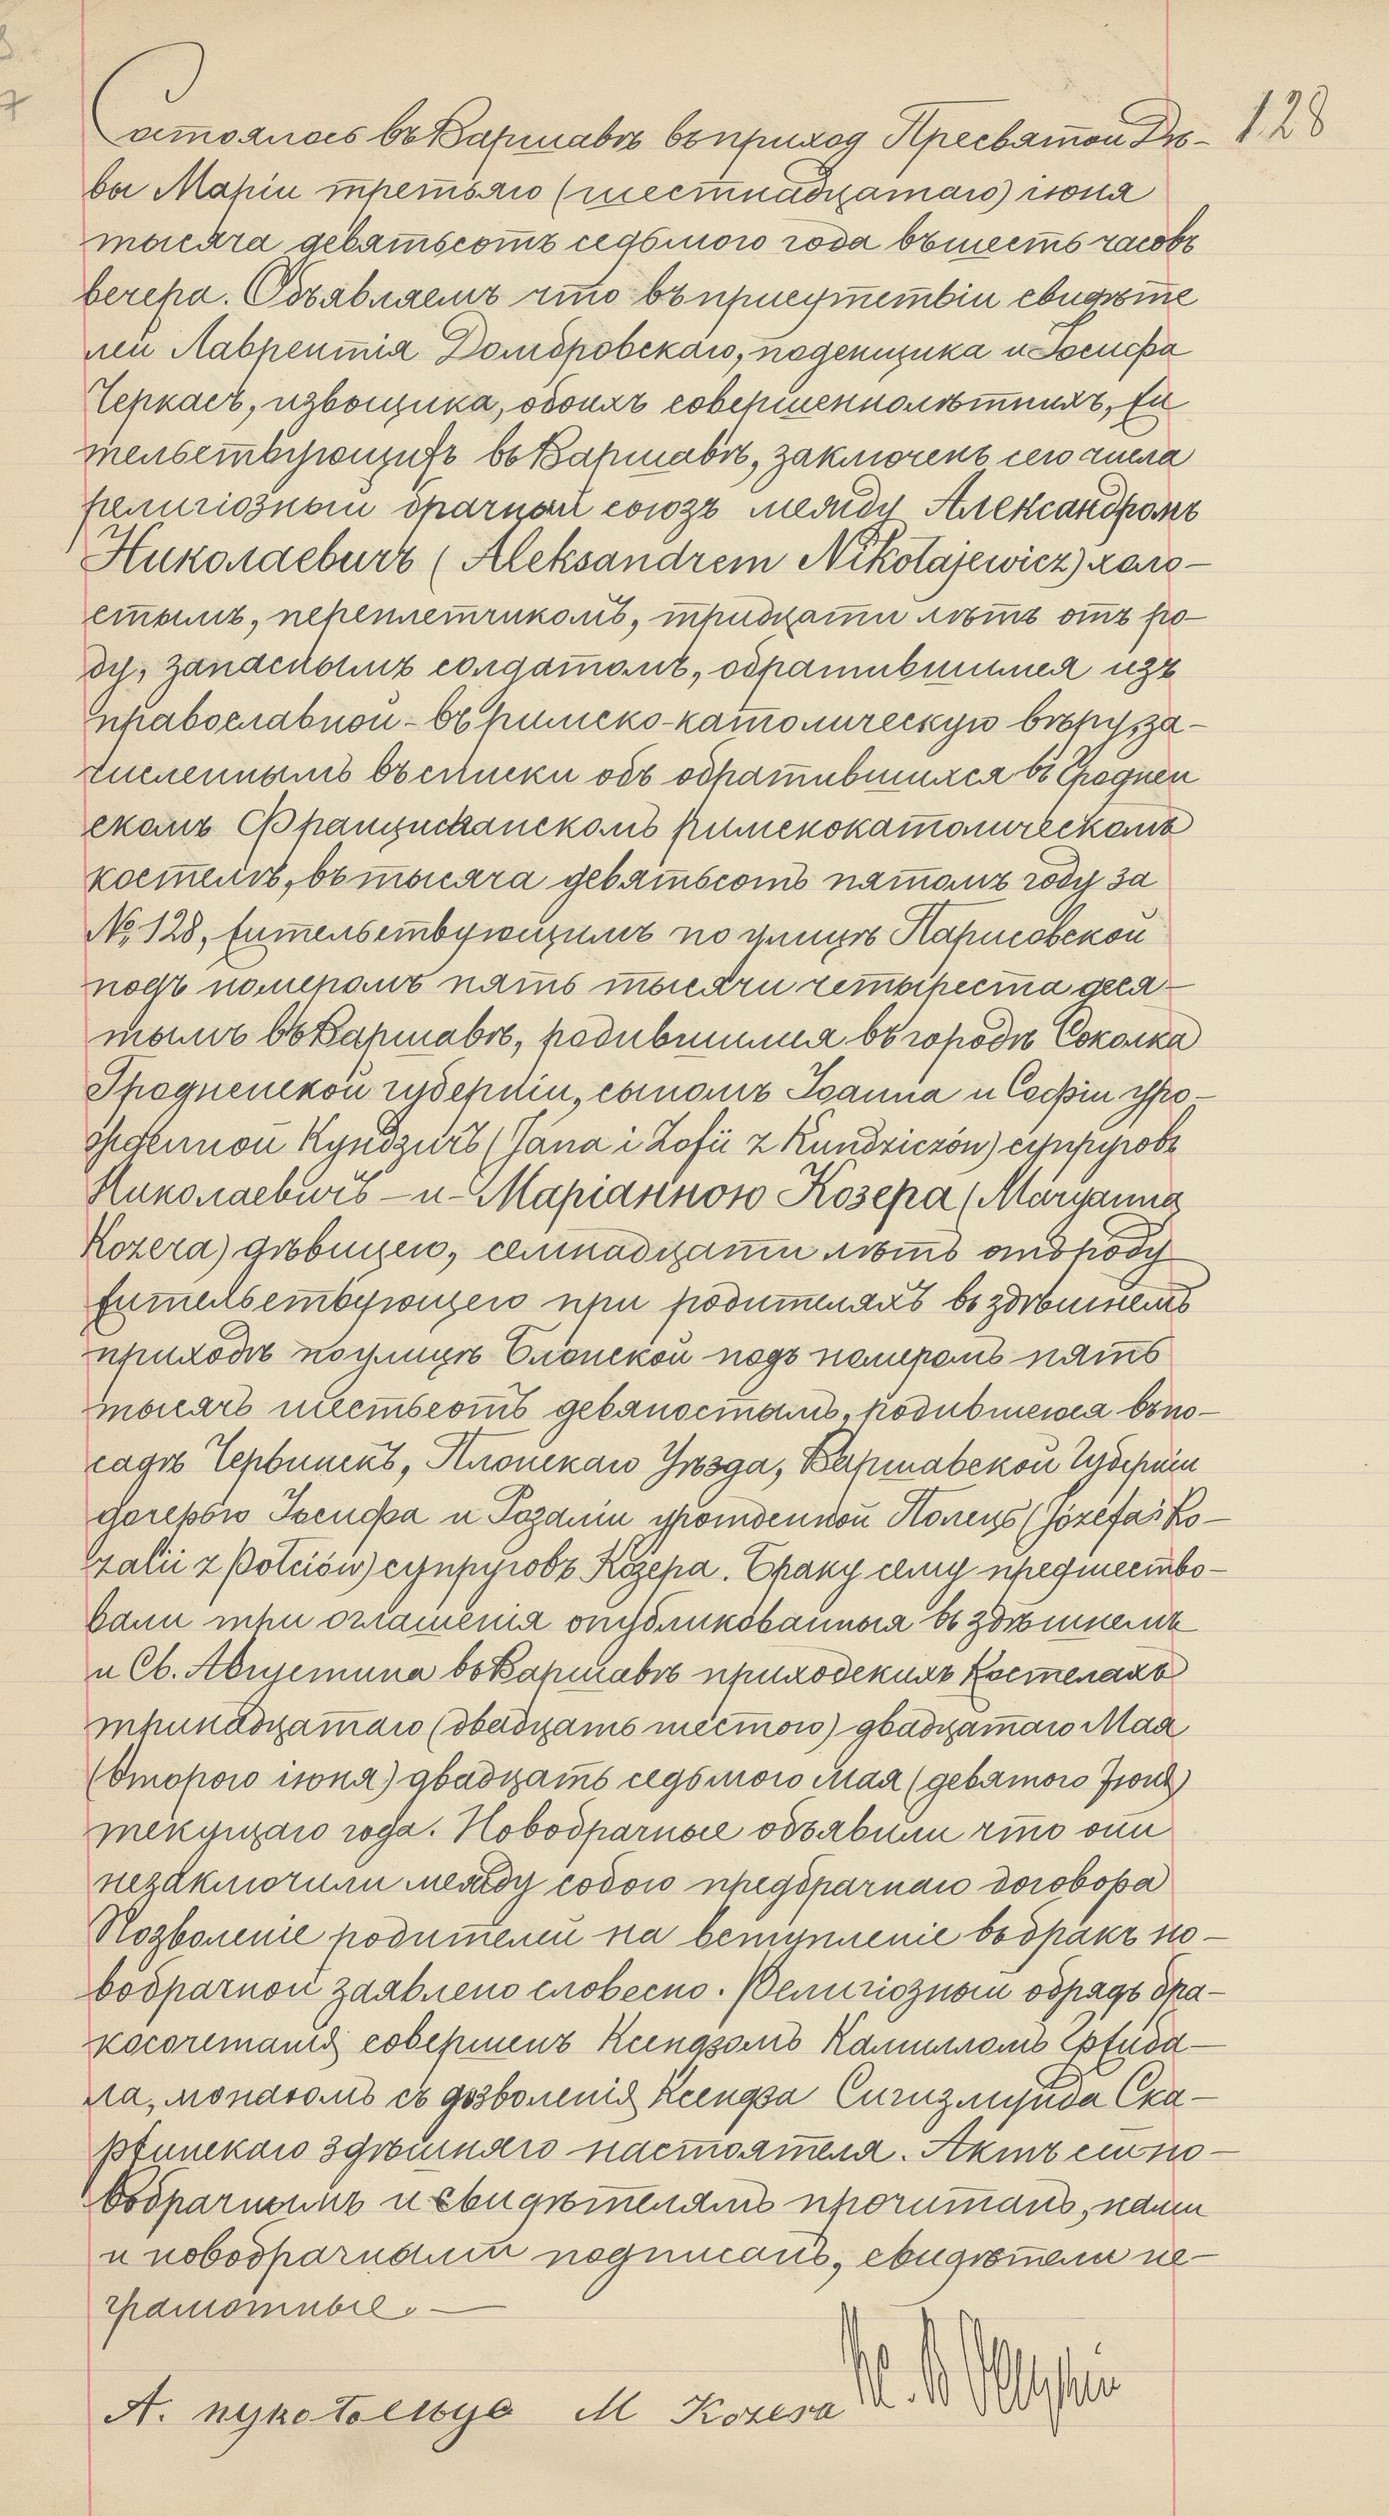 128
Состоялось въ Варшавѣ въ приход Пресвятой Дѣ-
вы Маріи третьяго (шестнадцатаго) іюня
тысяча девятьсотъ седьмого года въ шесть часовъ
вечера. Объявляемъ что въ присутствіи свидѣте
лей Лаврентія Домбровскаго, поденщика и Іосифа
Черкасъ, извощика, обоихъ совершеннолѣтнихъ, жи
тельствующихъ въ Варшавѣ, заключенъ сего числа
религіозный брачный союзъ между Александромъ
Николаевичъ (Aleksandrem Nikołajewicz) холо-
стымъ, переплетчикомъ, тридцати лѣтъ отъ ро-
ду, запаснымъ солдатомъ, обратившимся изъ
православной - въ римско-католическую вѣру, за-
численнымъ въ списки объ обратившихся въ Гроднен
скомъ Францисканскомъ римскокатолическомъ
костелѣ, въ тысяча девятьсотъ пятомъ году за
№ 128, жительствующимъ по улицѣ Парисовской
подъ номеромъ пять тысячи четыреста деся-
томъ въ Варшавѣ, родившимся въ городѣ Соколка
Гродненской губерніи, сыномъ Іоанна и Софіи уро-
жденной Кундзичъ (Jana i Zofii z Kundziczów) супруговъ
Николаевичъ - и - Маріанною Козера (Maryanną
Kozera) дѣвицею, семнадцати лѣтъ отъ роду
жительствующею при родителяхъ въ здѣшнемъ
приходѣ по улицѣ Блонской подъ номеромъ пять
тысячъ шестьсотъ девяностымъ, родившеюся въ по-
садѣ Червинскъ, Плонскаго Уѣзда, Варшавской Губерніи
дочерью Іосифа и Розаліи урожденной Полецъ (Józefa i Ro-
zalii z Polciów) супруговъ Козера. Браку сему предшество-
вали три оглашенія опубликованныя въ здѣшнемъ
и Св. Августина въ Варшавѣ приходскихъ костелахъ
тринадцатаго (двадцать шестого) двадцатаго Мая
(второго іюня) двадцать седьмого Мая (девятого Іюня)
текущаго года. Новобрачные объявили что они
незаключили между собою предбрачнаго договора
Позволеніе родителей на вступленіе въ бракъ но-
вобрачной заявлено словесно. Религіозный обрядъ бра-
косочетанія совершенъ Ксендзомъ Камилломъ
ла, монахомъ съ дозволенія Ксендза Сигизмунда Ска-
ржинскаго здѣшняго настоятеля. Актъ сей но-
вобрачнымъ и свидѣтелямъ прочитанъ, нами
и новобрачными подписанъ, свидѣтели не-
грамотные. —
А. М Kozera